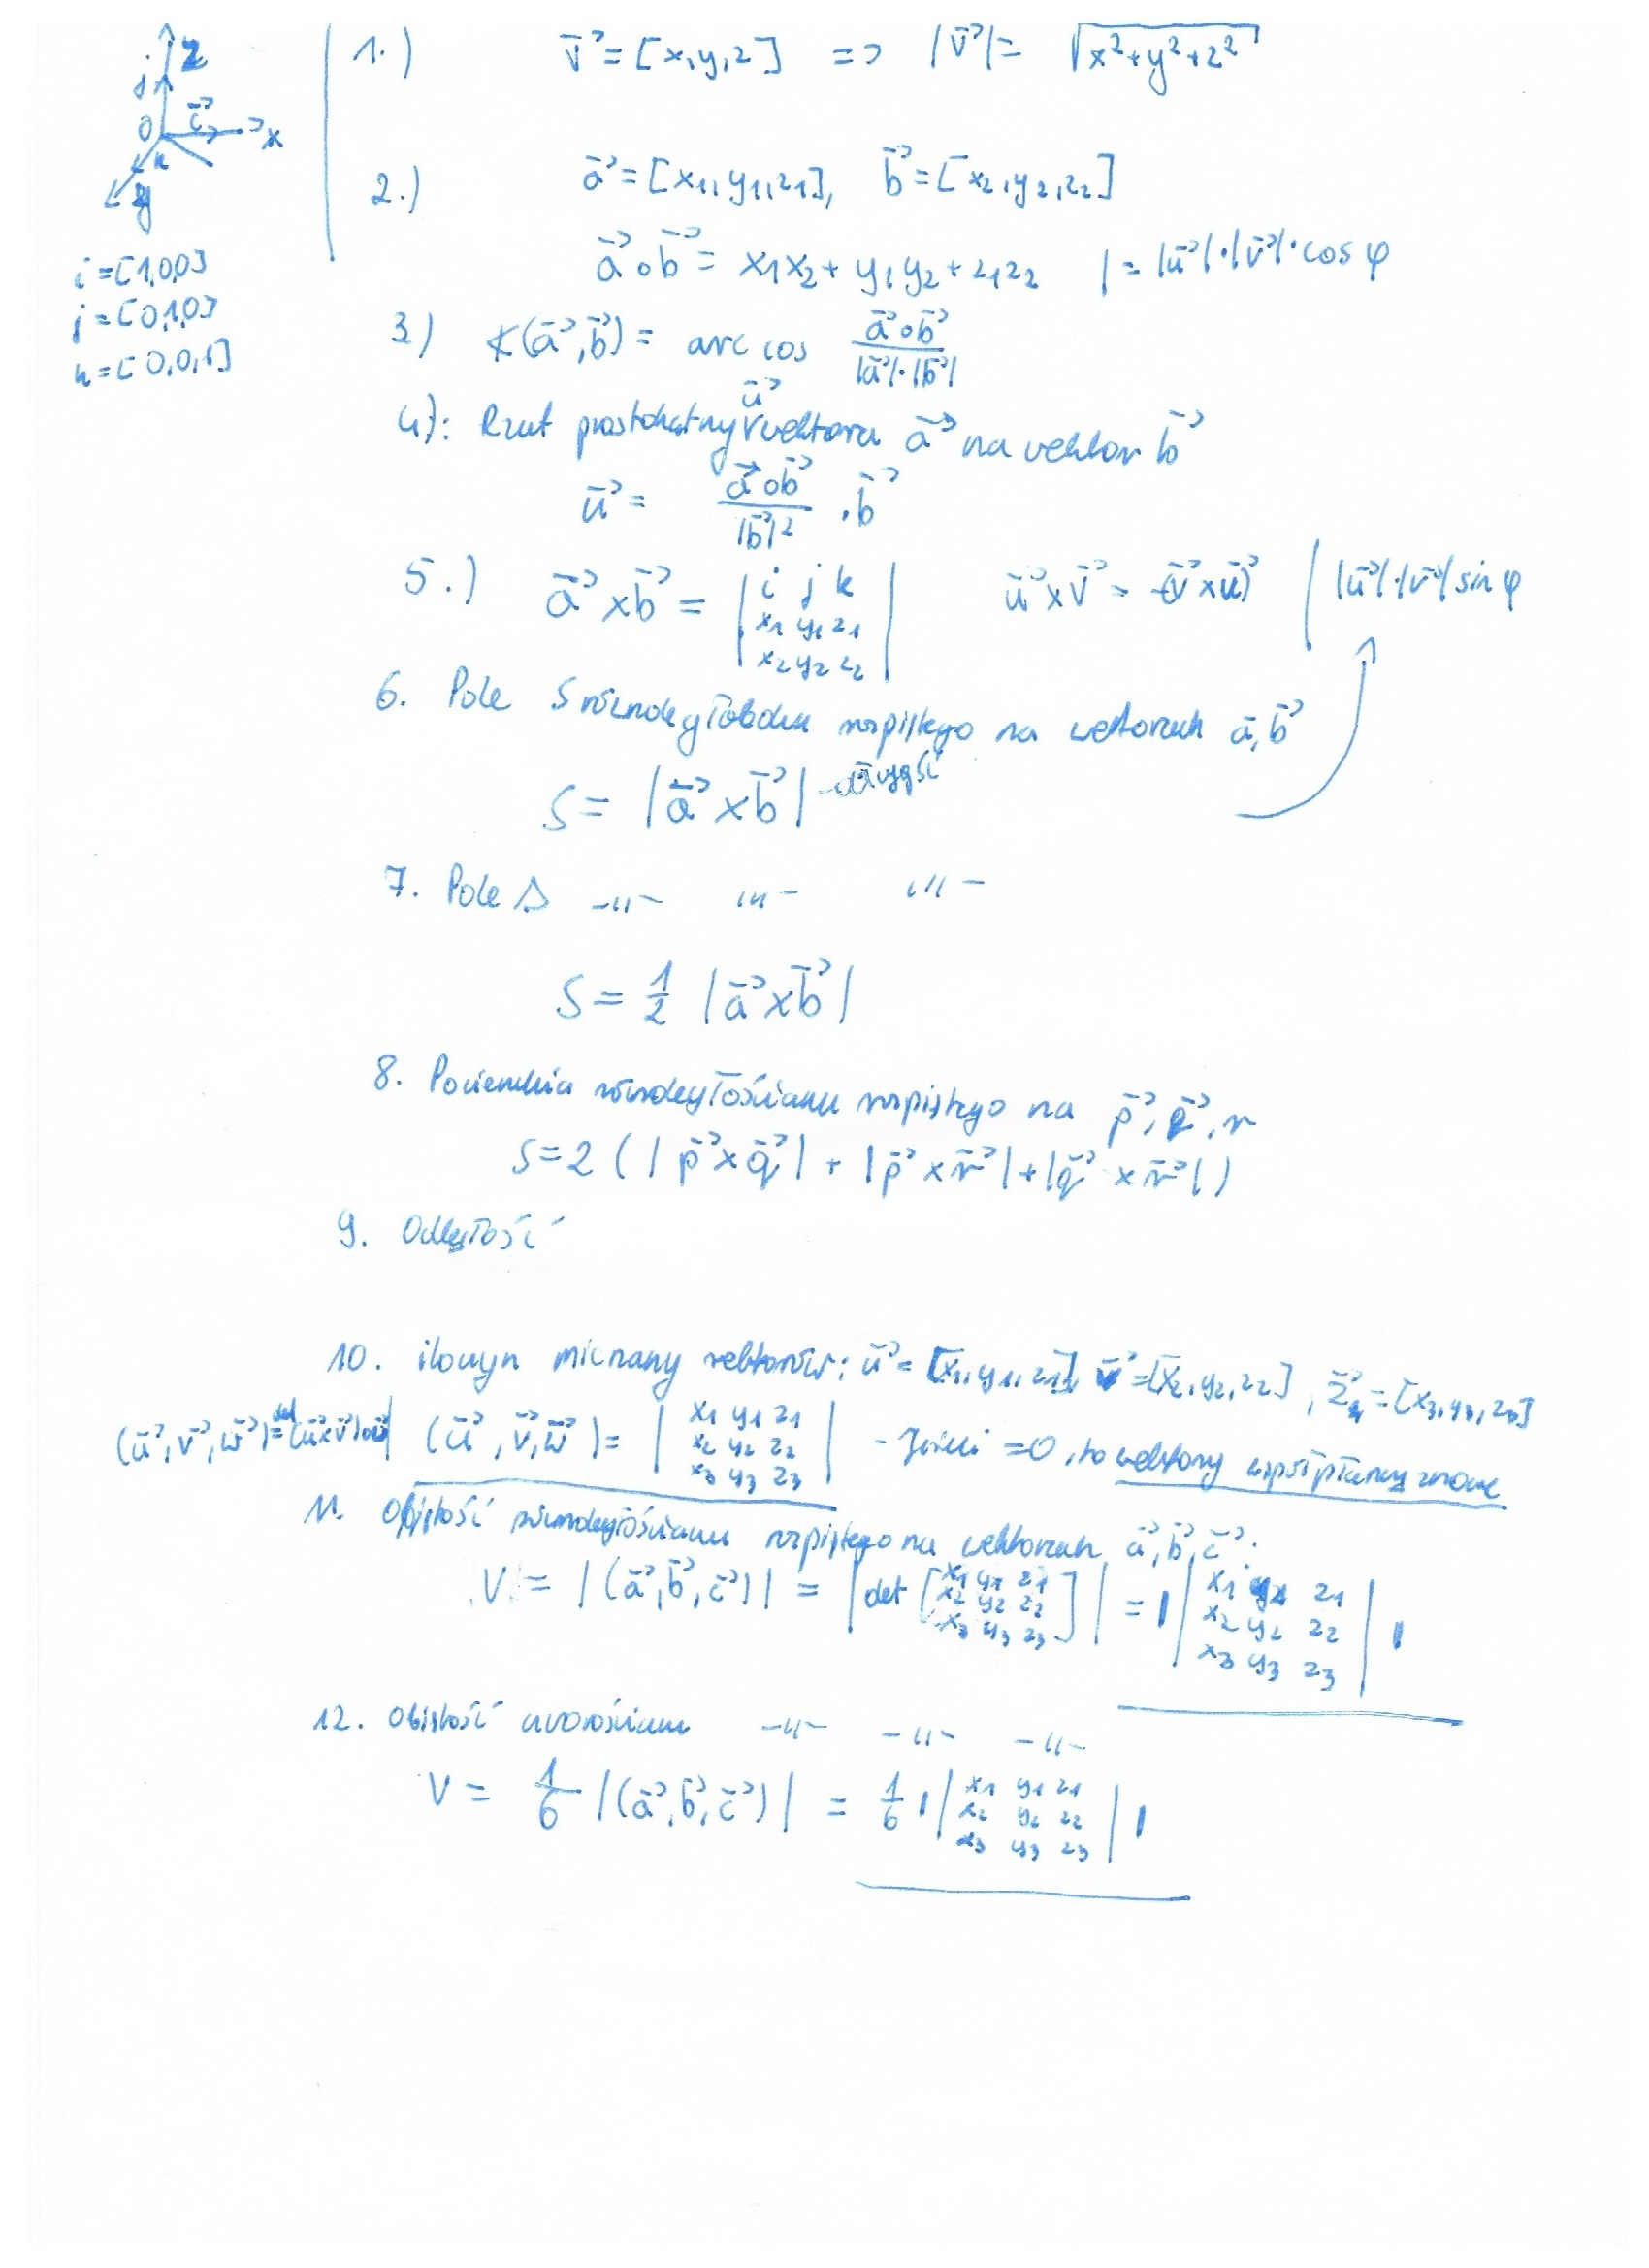 z
j
0 i⃗ x
k
y
i = [1,0,0]
j = [0,1,0]
k = [0,0,1]
1.) v⃗ = [x,y,z] => |v⃗| = √x²+y²+z²
2.) a⃗ = [x₁,y₁,z₁], b⃗ = [x₂,y₂,z₂]
a⃗ ∘ b⃗ = x₁x₂ + y₁y₂ + z₁z₂ | = |u⃗|·|v⃗|·cos φ
3) ∢(a⃗,b⃗) = arc cos a⃗∘b⃗ / |a⃗|·|b⃗|
4): Rzut prostokątny u⃗ wektora a⃗ na wektor b⃗
u⃗ = a⃗∘b⃗ / |b⃗|² · b⃗
5.) a⃗ × b⃗ = | i j k u⃗ × v⃗ = -(v⃗ × u⃗) | |u⃗|·|v⃗| sin φ
x₁ y₁ z₁
x₂ y₂ z₂ |
6. Pole S równoległoboku rozpiętego na wektorach a⃗, b⃗
S = |a⃗ × b⃗|
7. Pole Δ -〃- -〃- -〃-
S = 1/2 |a⃗ × b⃗|
8. Powierzchnia równoległościanu rozpiętego na p⃗, q⃗, r
S = 2 (|p⃗ × q⃗| + |p⃗ × r⃗| + |q⃗ × r⃗|)
9. Odległość
10. iloczyn mieszany wektorów: u⃗ = [x₁,y₁,z₁], v⃗ = [x₂,y₂,z₂], = [x₃,y₃,z₃]
(u⃗, v⃗, w⃗) def= (u⃗×v⃗)∘w⃗ | (u⃗, v⃗, w⃗) = | x₁ y₁ z₁ - Jeżeli = 0, to wektory współpłaszczyznowe
x₂ y₂ z₂
x₃ y₃ z₃ |
11. Objętość równoległościanu rozpiętego na wektorach a⃗, b⃗, c⃗:
V = |(a⃗, b⃗, c⃗)| = |det [x₁ y₁ z₁ x₂ y₂ z₂ x₃ y₃ z₃]| = | |x₁ y₁ z₁ x₂ y₂ z₂ x₃ y₃ z₃| |
12. Objętość czworościanu -〃- -〃- -〃-
V = 1/6 |(a⃗, b⃗, c⃗)| = 1/6 | |x₁ y₁ z₁ x₂ y₂ z₂ x₃ y₃ z₃| |